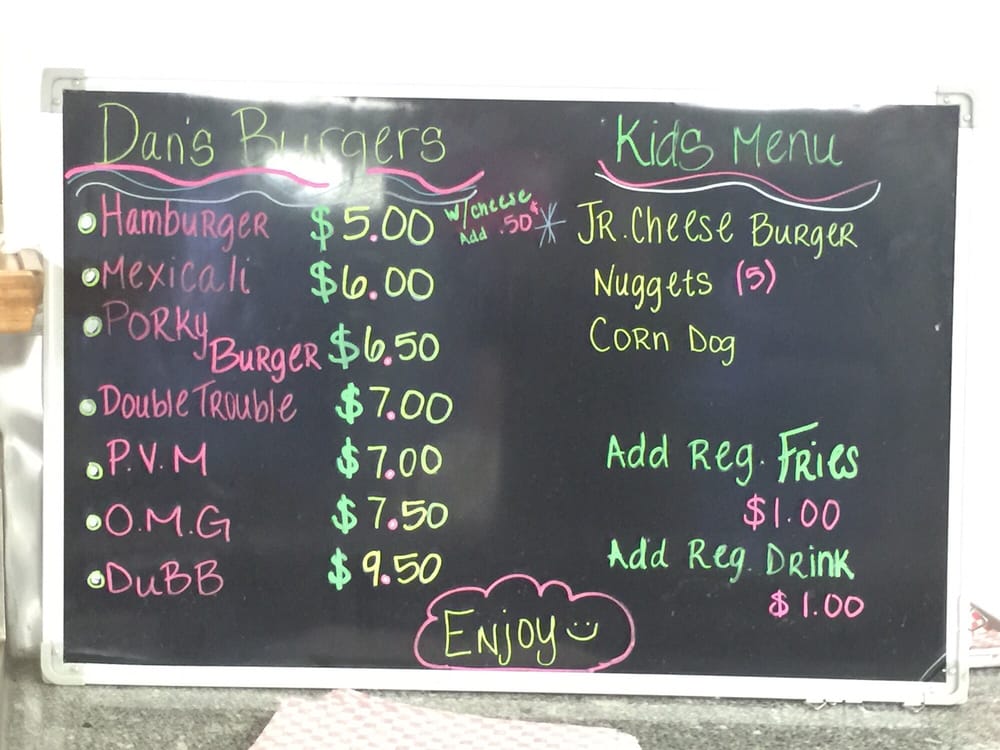 Dan's Burgers
Hamburger $5.00 w/cheese
Add .50¢
Mexicali $6.00
Porky
Burger $6.50
Double Trouble $7.00
P.V.M $7.00
O.M.G $7.50
DuBB $9.50
Kids Menu
Jr. Cheese Burger
Nuggets (5)
Corn Dog
Add Reg. Fries
$1.00
Add Reg. Drink
$1.00
Enjoy